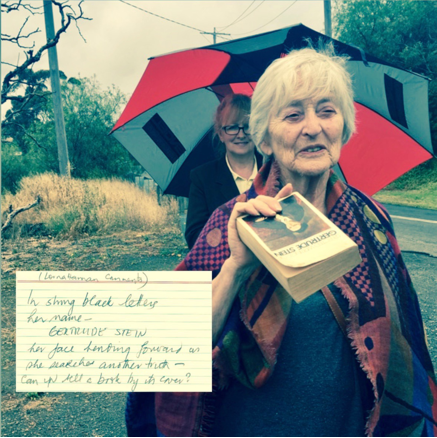 GERTRUDE STEIN
In strong black letters
her name –
GERTRUDE STEIN
her face bending forward as
she searches another truth –
Can up tell a book by its cover?